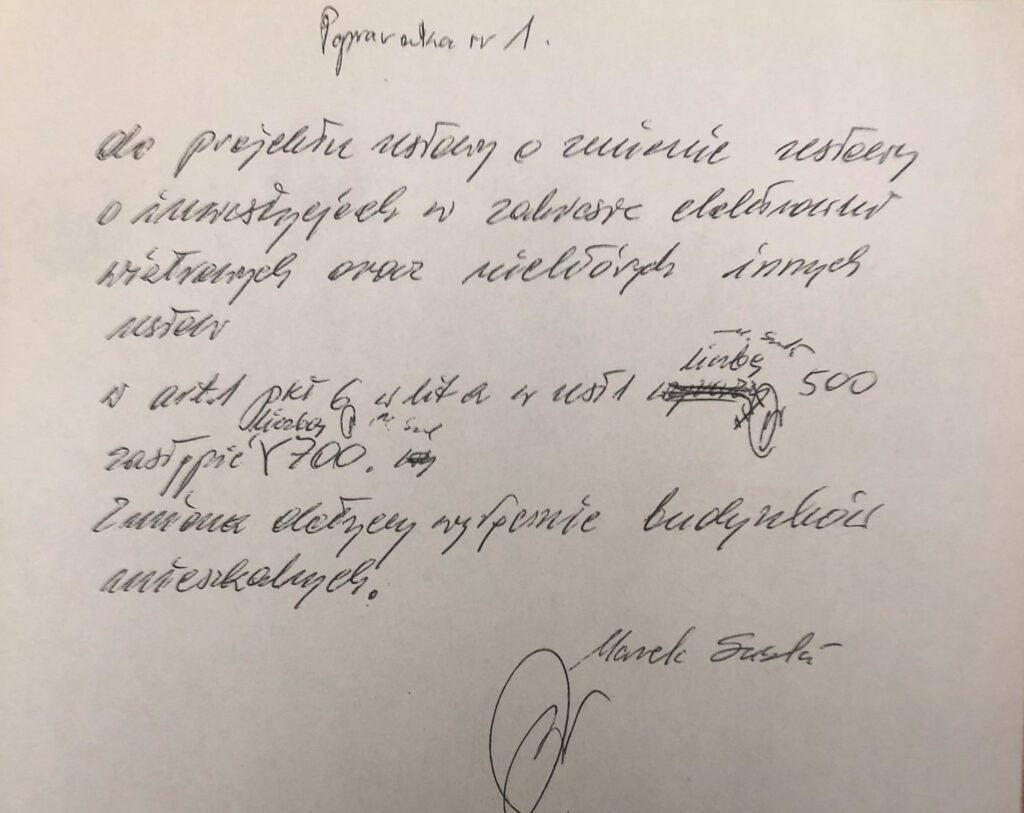 Poprawka nr 1.
do projektu ustawy o zmianie ustawy
o inwestycjach w zakresie elektrowni
wiatrowych oraz niektórych innych
ustaw
liczbę
w art.1 pkt 6 w lit a w ust 1 500
liczbą
zastąpić 700.
Zmiana dotyczy wyłącznie budynków
mieszkalnych.
Marek Suski